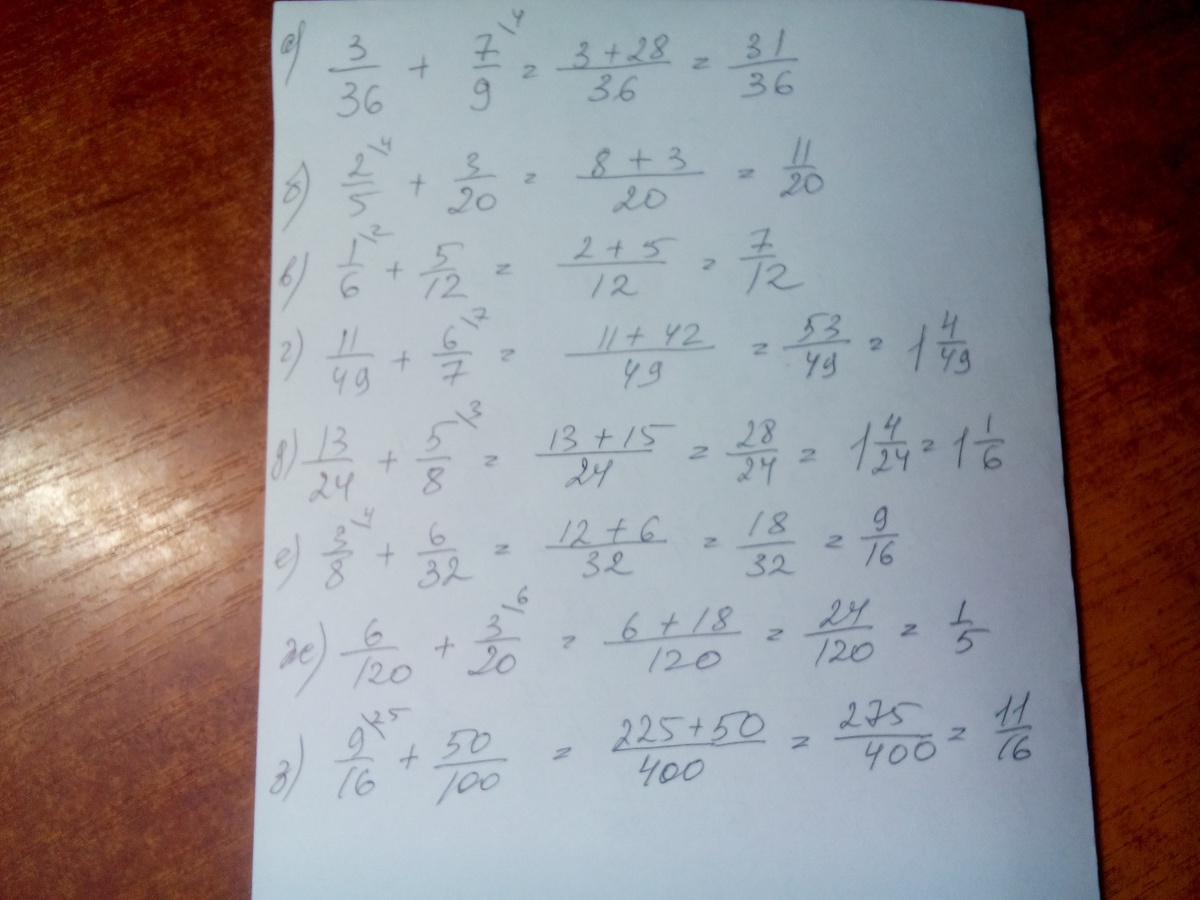 а) 3/36 + 7\4/9 = 3 + 28/36 = 31/36
б) 2\4/5 + 3/20 = 8 + 3/20 = 11/20
в) 1\2/6 + 5/12 = 2 + 5/12 = 7/12
г) 11/49 + 6\7/7 = 11 + 42/49 = 53/49 = 1 4/49
д) 13/24 + 5\3/8 = 13 + 15/24 = 28/24 = 1 4/24 = 1 1/6
е) 3\4/8 + 6/32 = 12 + 6/32 = 18/32 = 9/16
ж) 6/120 + 3\6/20 = 6 + 18/120 = 24/120 = 1/5
з) 9\25/16 + 50/100 = 225 + 50/400 = 275/400 = 11/16